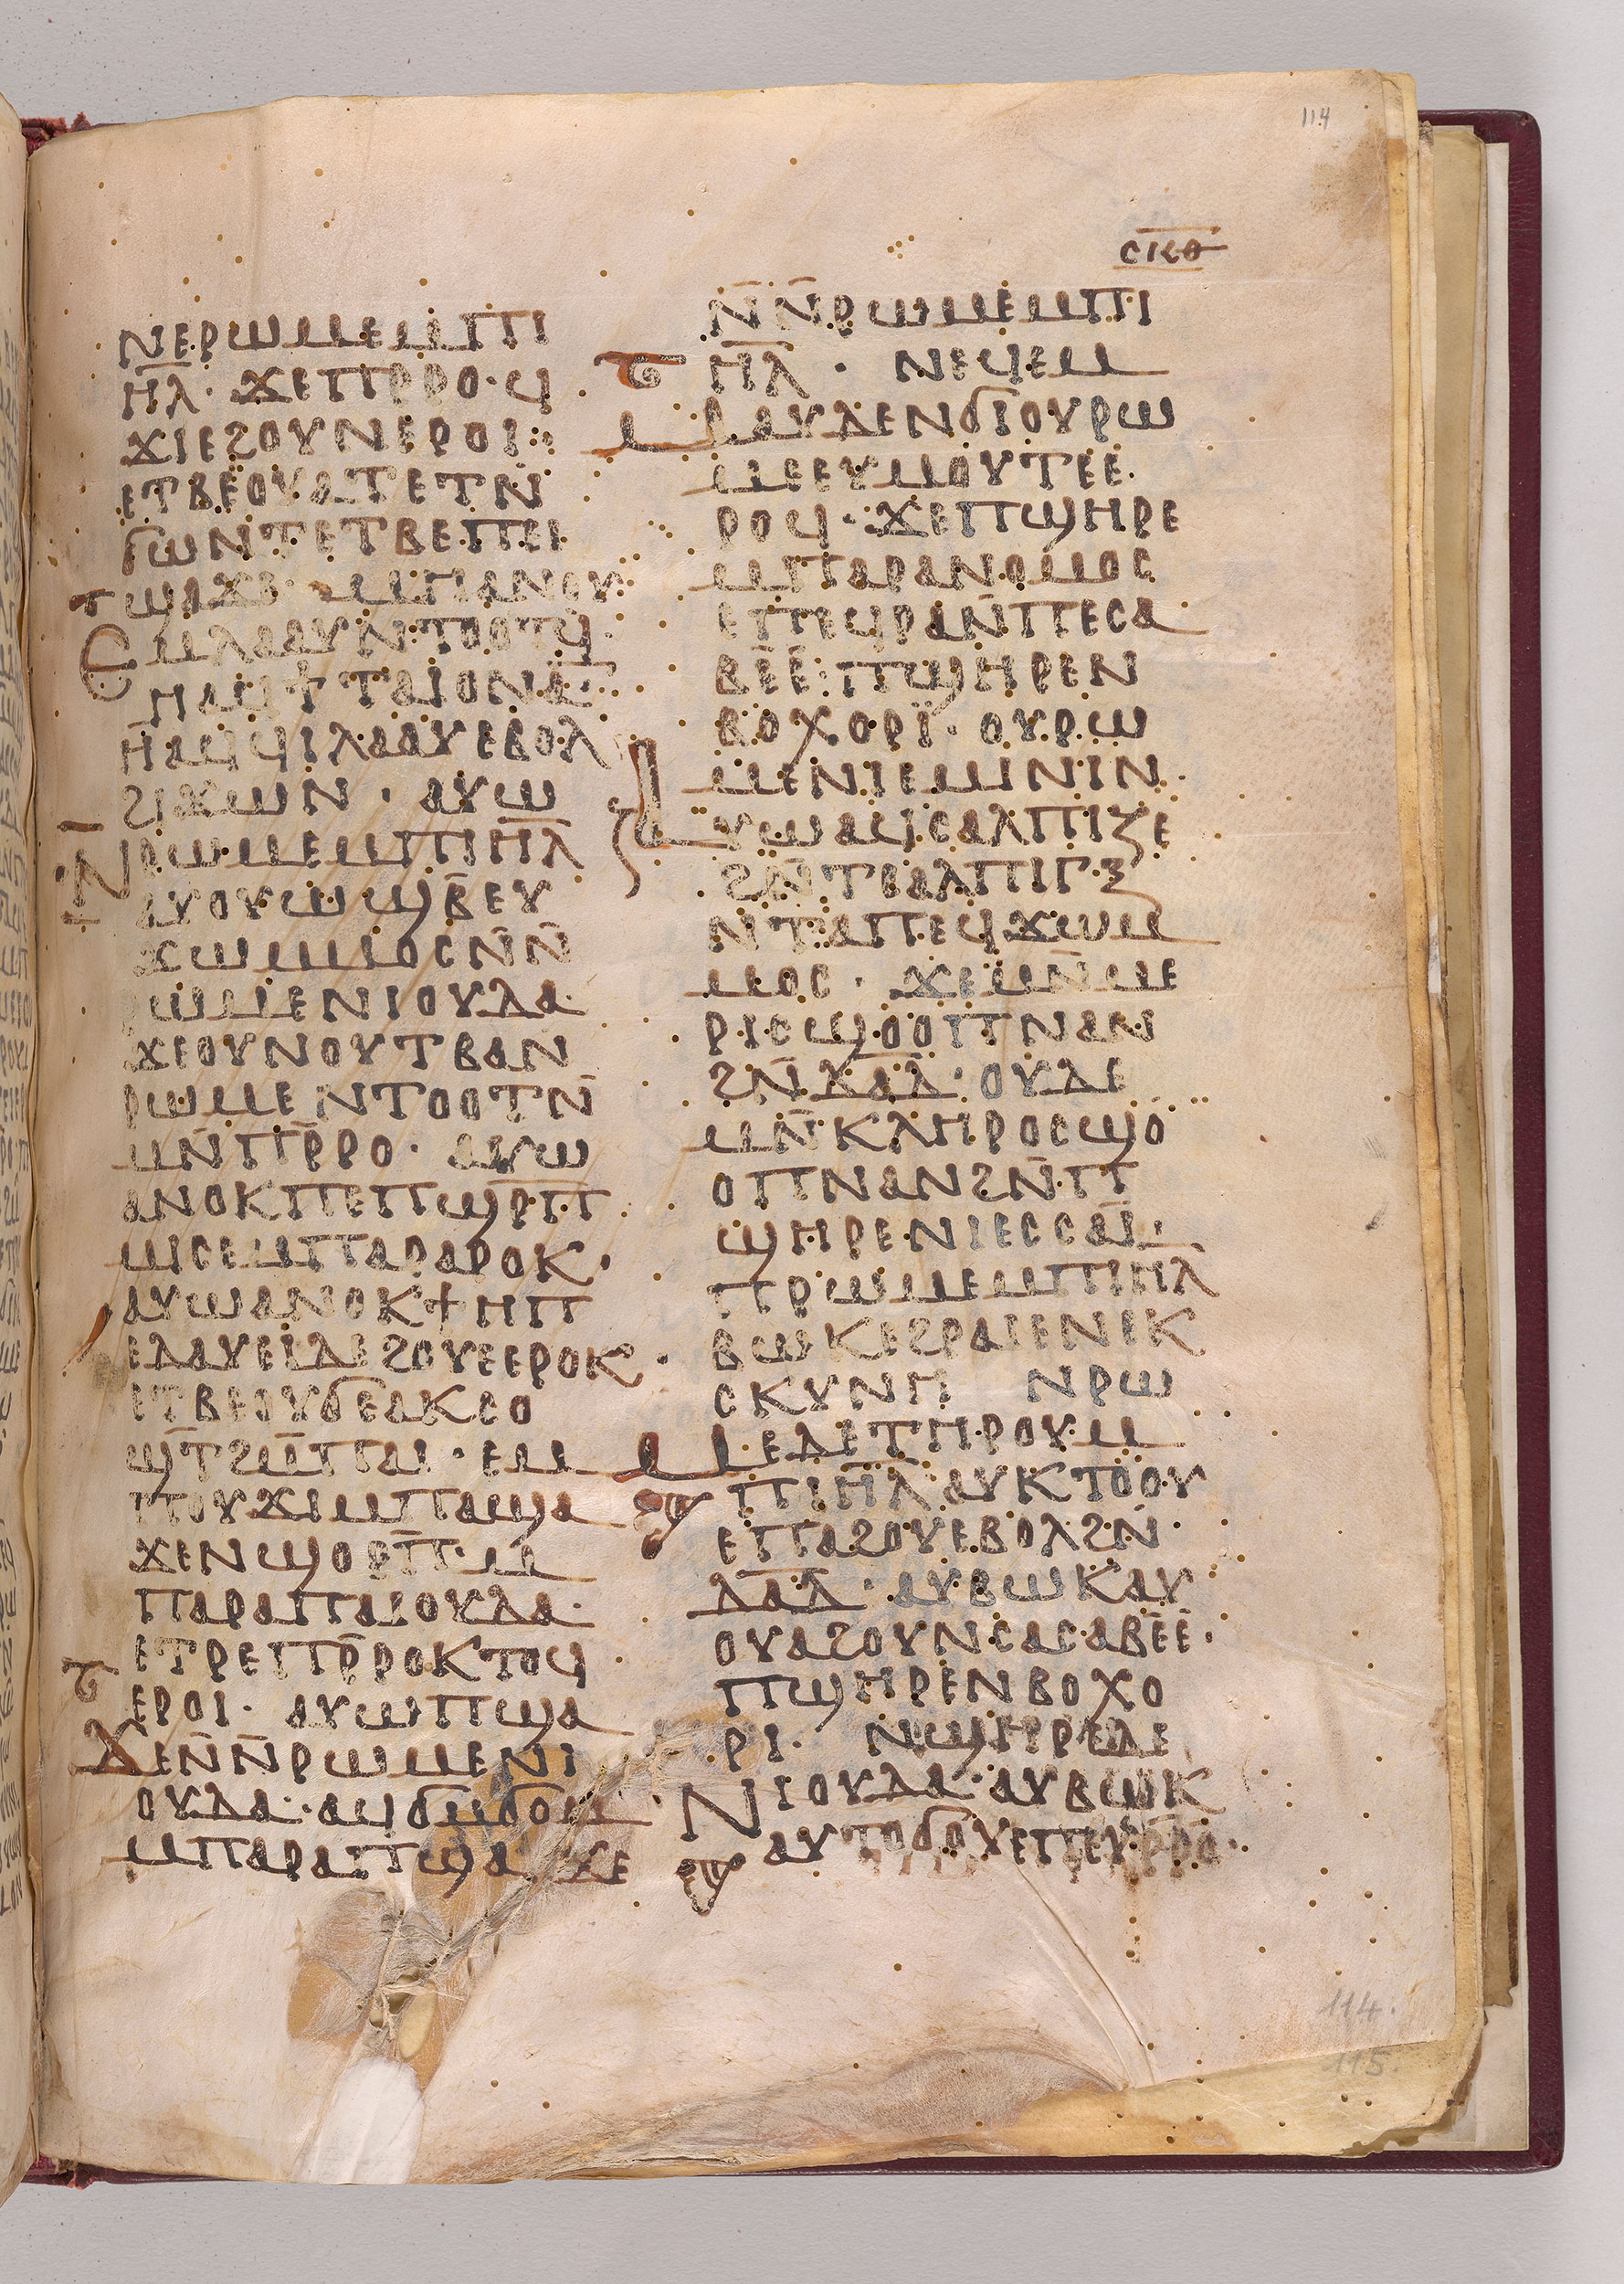 114
ⲥⲕⲑ
ⲛⲉⲣⲱⲙⲉⲙⲡⲓ
ⲏ̅ⲗ̅· ϫⲉⲡⲣ̅ⲣⲟ·ϥ
ϫⲓⲉϩⲟⲩⲛⲉⲣⲟⲓ:
ⲉⲧⲃⲉⲟⲩⲁⲧⲉⲧⲛ̅
ϭⲱⲛⲧⲉⲧⲃⲉⲡⲉⲓ
ϣⲁϫⲉ· ⲙⲡⲁⲛⲟⲩ
ⲉⲙⲗⲁⲁⲩⲛⲧⲟⲟⲧϥ·
ⲏⲁϥϯⲧⲁⲓⲟⲛⲁ̅ⲛ̅·
ⲏⲁϥϥⲓⲗⲁⲁⲩⲉⲃⲟⲗ
ϩⲓϫⲱⲛ · ⲁⲩⲱ
ⲛ̅ⲣⲱⲙⲉⲙⲡⲓⲏ̅ⲗ̅
ⲁⲩⲟⲩⲱϣⲃ̅ⲉⲩ
ϫⲱⲙⲙⲟⲥⲛ̅ⲛ̅
ⲣⲱⲙⲉⲛⲓⲟⲩⲇⲁ·
ϫⲉⲟⲩⲛⲟⲩⲧⲃⲁⲛ
ⲣⲱⲙⲉⲛⲧⲟⲟⲧⲛ̅
ⲙⲛ̅ⲡⲣ̅ⲣⲟ· ⲁⲩⲱ
ⲁⲛⲟⲕⲡⲉⲡϣⲣ̅ⲡ̅
ⲙⲓⲥⲉⲙⲡⲁⲣⲁⲣⲟⲕ·
ⲁⲩⲱⲁⲛⲟⲕϯⲏⲡ
ⲉⲇⲁⲩⲉⲓⲇⲉϩⲟⲩⲉⲉⲣⲟⲕ·
ⲉⲧⲃⲉⲟⲩϭⲉⲁⲕⲥⲟ
ϣⲧ̅ϩⲙ̅ⲡⲁⲓ· ⲉⲙ
ⲡⲟⲩϫⲓⲙⲡⲁϣⲁ
ϫⲉⲛϣⲟⲣⲡ̅·ⲙ
ⲡⲁⲣⲁⲡⲁⲓⲟⲩⲇⲁ·
ⲉⲧⲣⲉⲡⲣ̅ⲣⲟⲕⲧⲟϥ
ⲉⲣⲟⲓ· ⲁⲩⲱⲡϣⲁ
ϫⲉⲛ̅ⲛ̅ⲣⲱⲙⲉⲛⲓ
ⲟⲩⲇⲁ· ⲁϥϭⲙϭⲟⲙ
ⲙⲡⲁⲣⲁⲡϣⲁϫⲉ
ⲛ̅ⲛ̅ⲣⲱⲙⲉⲙⲡⲓ
ⲏ̅ⲗ̅ · ⲛⲉϥⲉⲙ
ⲙⲁⲩⲇⲉⲛϭⲓⲟⲩⲣⲱ
ⲙⲉⲉⲩⲙⲟⲩⲧⲉⲉ·
ⲣⲟϥ· ϫⲉⲡϣⲏⲣⲉ
ⲙⲡⲁⲣⲁⲛⲟⲙⲟⲥ
ⲉⲡⲉϥⲣⲁⲛ̅ⲡⲉⲥⲁ
ⲃⲉⲉ:ⲡϣⲏⲣⲉⲛ
ⲃⲟⲭⲟⲣⲓ̈· ⲟⲩⲣⲱ
ⲙⲉⲛⲓⲉⲙⲓⲛⲓⲛ·
ⲁⲩⲱⲁϥⲥⲁⲗⲡⲓⲍⲉ
ϩⲛ̅ⲧⲥⲁⲗⲡⲓⲅⲝ
ⲛⲧⲁⲡⲉϥϫⲱⲙ
ⲙⲟⲥ· ϫⲉⲙⲛ̅ⲙⲉ
ⲣⲓⲥϣⲟⲟⲡⲛⲁⲛ
ϩⲛ̅ⲇ̅ⲁ̅ⲇ̅· ⲟⲩⲇⲉ
ⲙⲛ̅ⲕⲗⲏⲣⲟⲥϣⲟ
ⲟⲡⲛⲁⲛϩⲛ̅ⲡ
ϣⲏⲣⲉⲛⲓⲉⲥⲥⲁⲓ̈·
ⲡⲣⲱⲙⲉⲙⲡⲓⲏ̅ⲗ̅
ⲃⲱⲕⲉϩⲣⲁⲓⲉⲛⲉⲕ
ⲥⲕⲩⲛⲏ ⲛⲣⲱ
ⲙⲉⲇⲉⲧⲏⲣⲟⲩⲙ
ⲡⲓⲏ̅ⲗ̅ⲁⲩⲕⲧⲟⲟⲩ
ⲉⲡⲁϩⲟⲩⲉⲃⲟⲗϩⲛ̅
ⲇ̅ⲁ̅ⲇ̅· ⲁⲩⲃⲱⲕⲁⲩ
ⲟⲩⲁϩⲟⲩⲛⲥⲁⲥⲁⲃⲉⲉ·
ⲡϣⲏⲣⲉⲛⲃⲟⲭⲟ
ⲣⲓ· ⲛϣⲏⲣⲉⲇⲉ
ⲛⲓⲟⲩⲇⲁ·ⲁⲩⲃⲱⲕ
ⲁⲩⲧⲟϭⲟⲩⲉⲡⲉⲩⲣ̅ⲣⲟ·
114.
115.